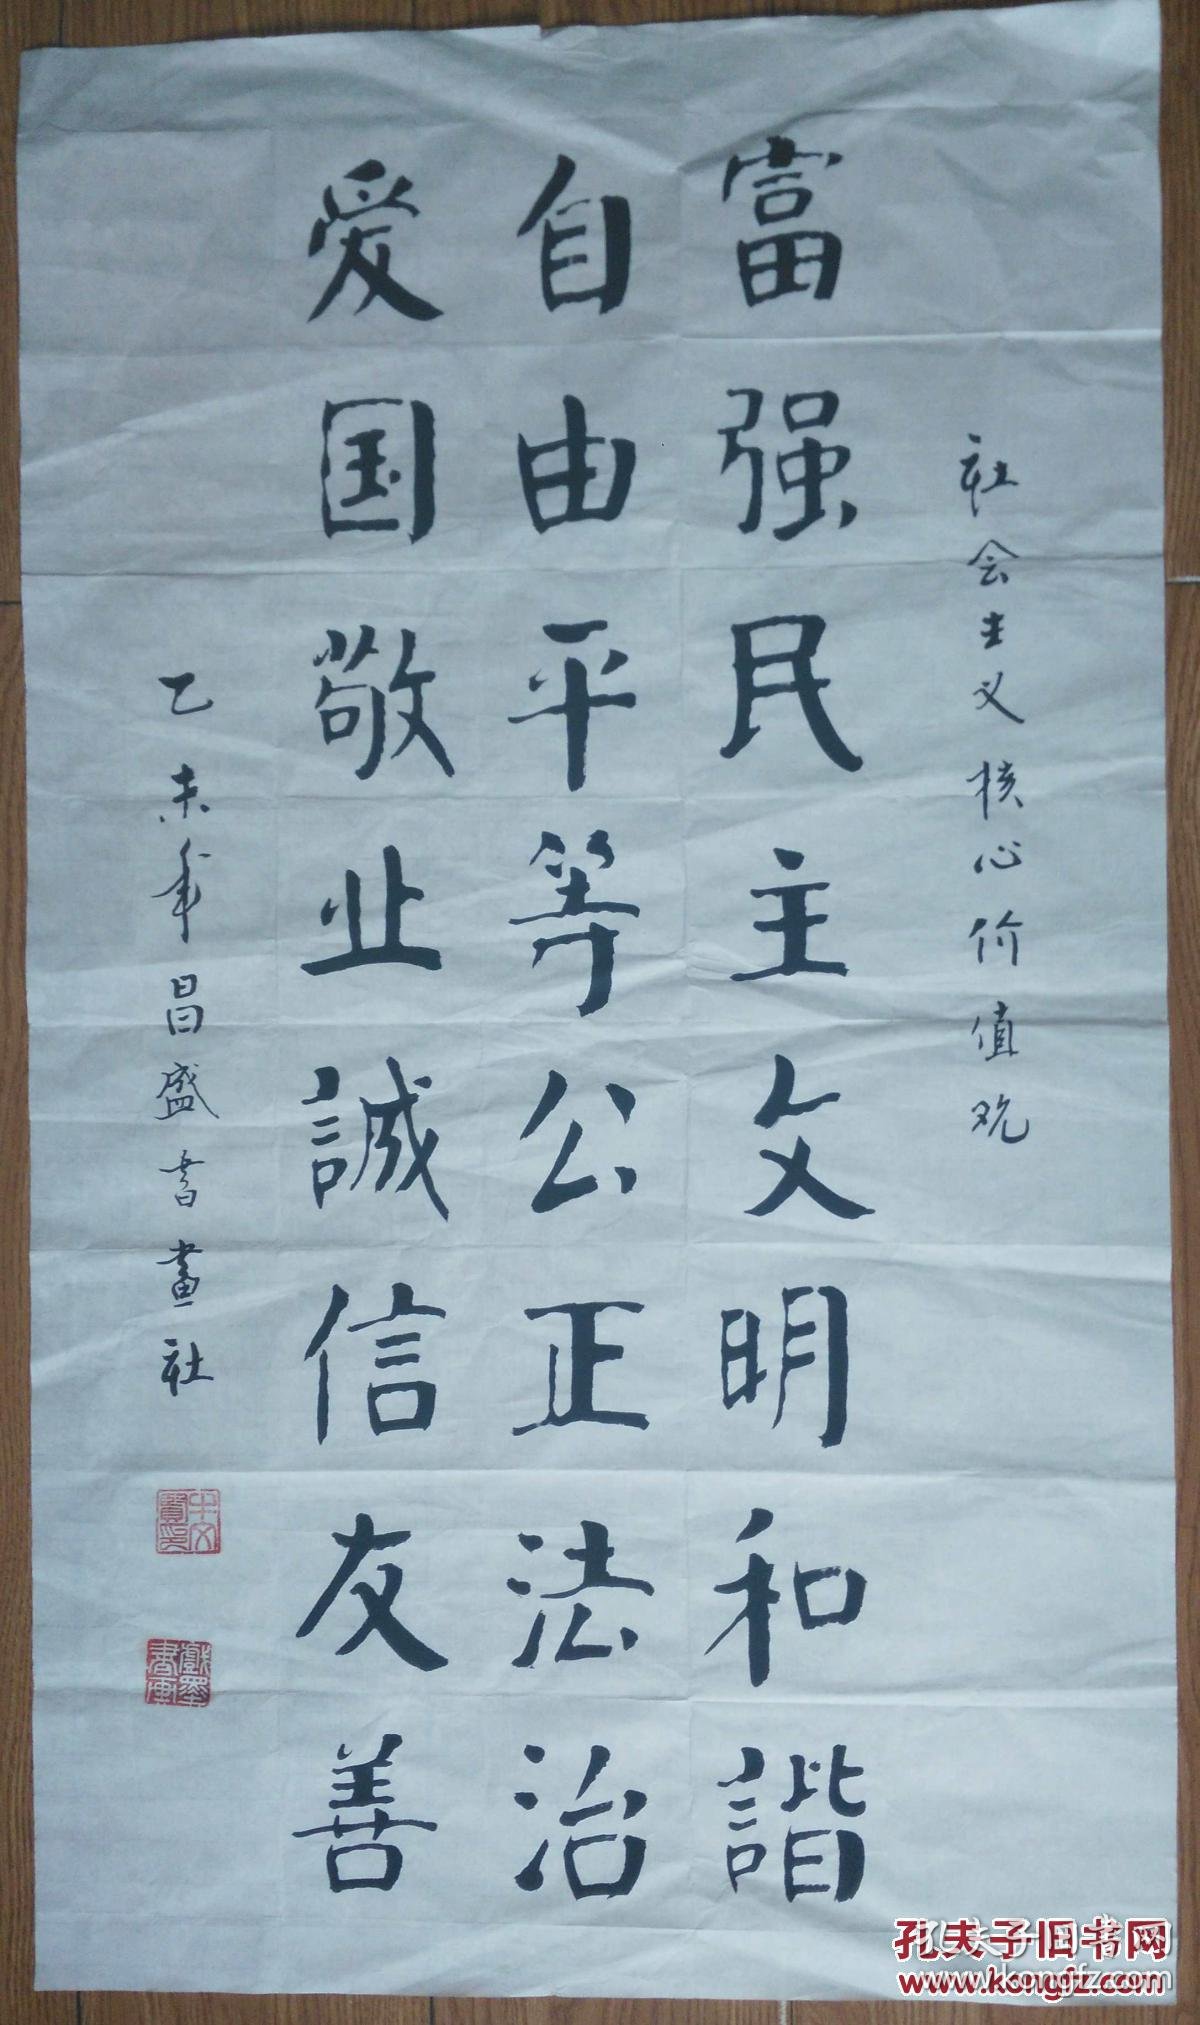 社会主义核心价值观
富强民主文明和谐
自由平等公正法治
爱国敬业誠信友善
乙未年昌盛书畫社
孔夫子旧书网
www.kongfz.com